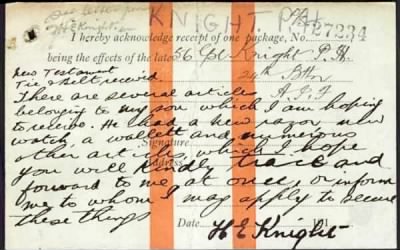 See letter from
H E Knight
KNIGHT, P.H.
27234
I hereby acknowledge receipt of one package, No.
being the effects of the late 56 Cpl Knight P. H.
24th Bttn
A. I. F
New Testament
Tie, Belt received
There are several article
belonging to my son which I am hoping
to receive. He had a new razor new
watch, a wallett and numerious
other articles, which I hope
Signature
you will Kindly trace and
forward to me at once, or inform
me to whom I may apply to secure
these things
Date 191
H E Knight